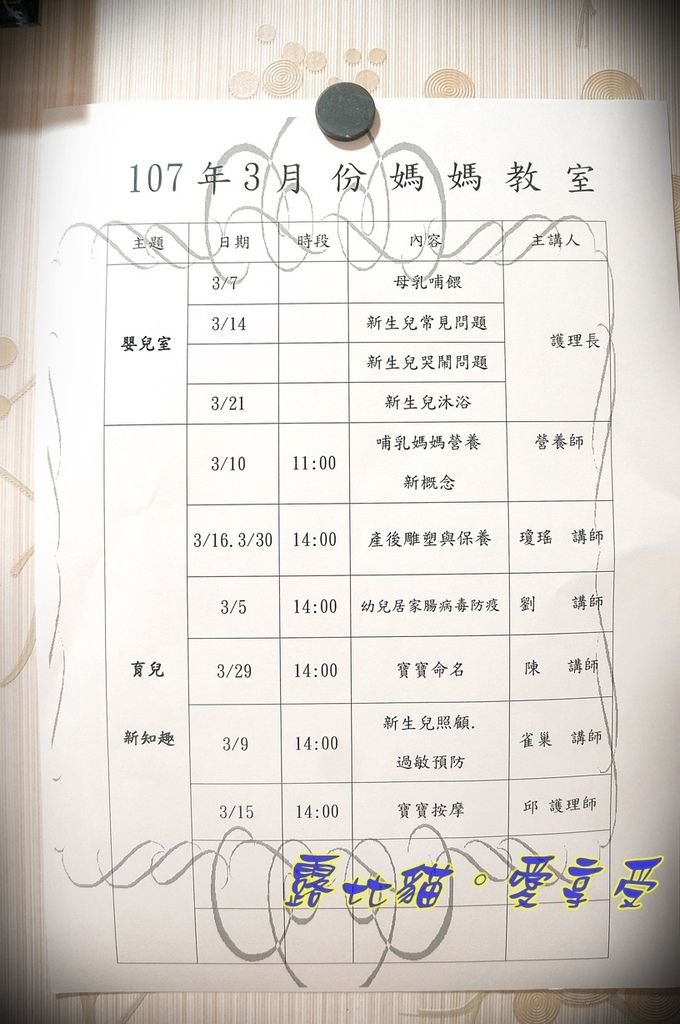 107年3月份媽媽教室
主題 日期 時段 內容 主講人
3/7 母乳哺餵
3/14 新生兒常見問題
嬰兒室 護理長
新生兒哭鬧問題
3/21 新生兒沐浴
哺乳媽媽營養 營養師
3/10 11:00
新概念
3/16.3/30 14:00 產後雕塑與保養 瓊瑤 講師
3/5 14:00 幼兒居家腸病毒防疫 劉 講師
育兒 3/29 14:00 寶寶命名 陳 講師
新生兒照顧.
新知趣 3/9 14:00 雀巢 講師
過敏預防
3/15 14:00 寶寶按摩 邱 護理師
露比貓。愛享受